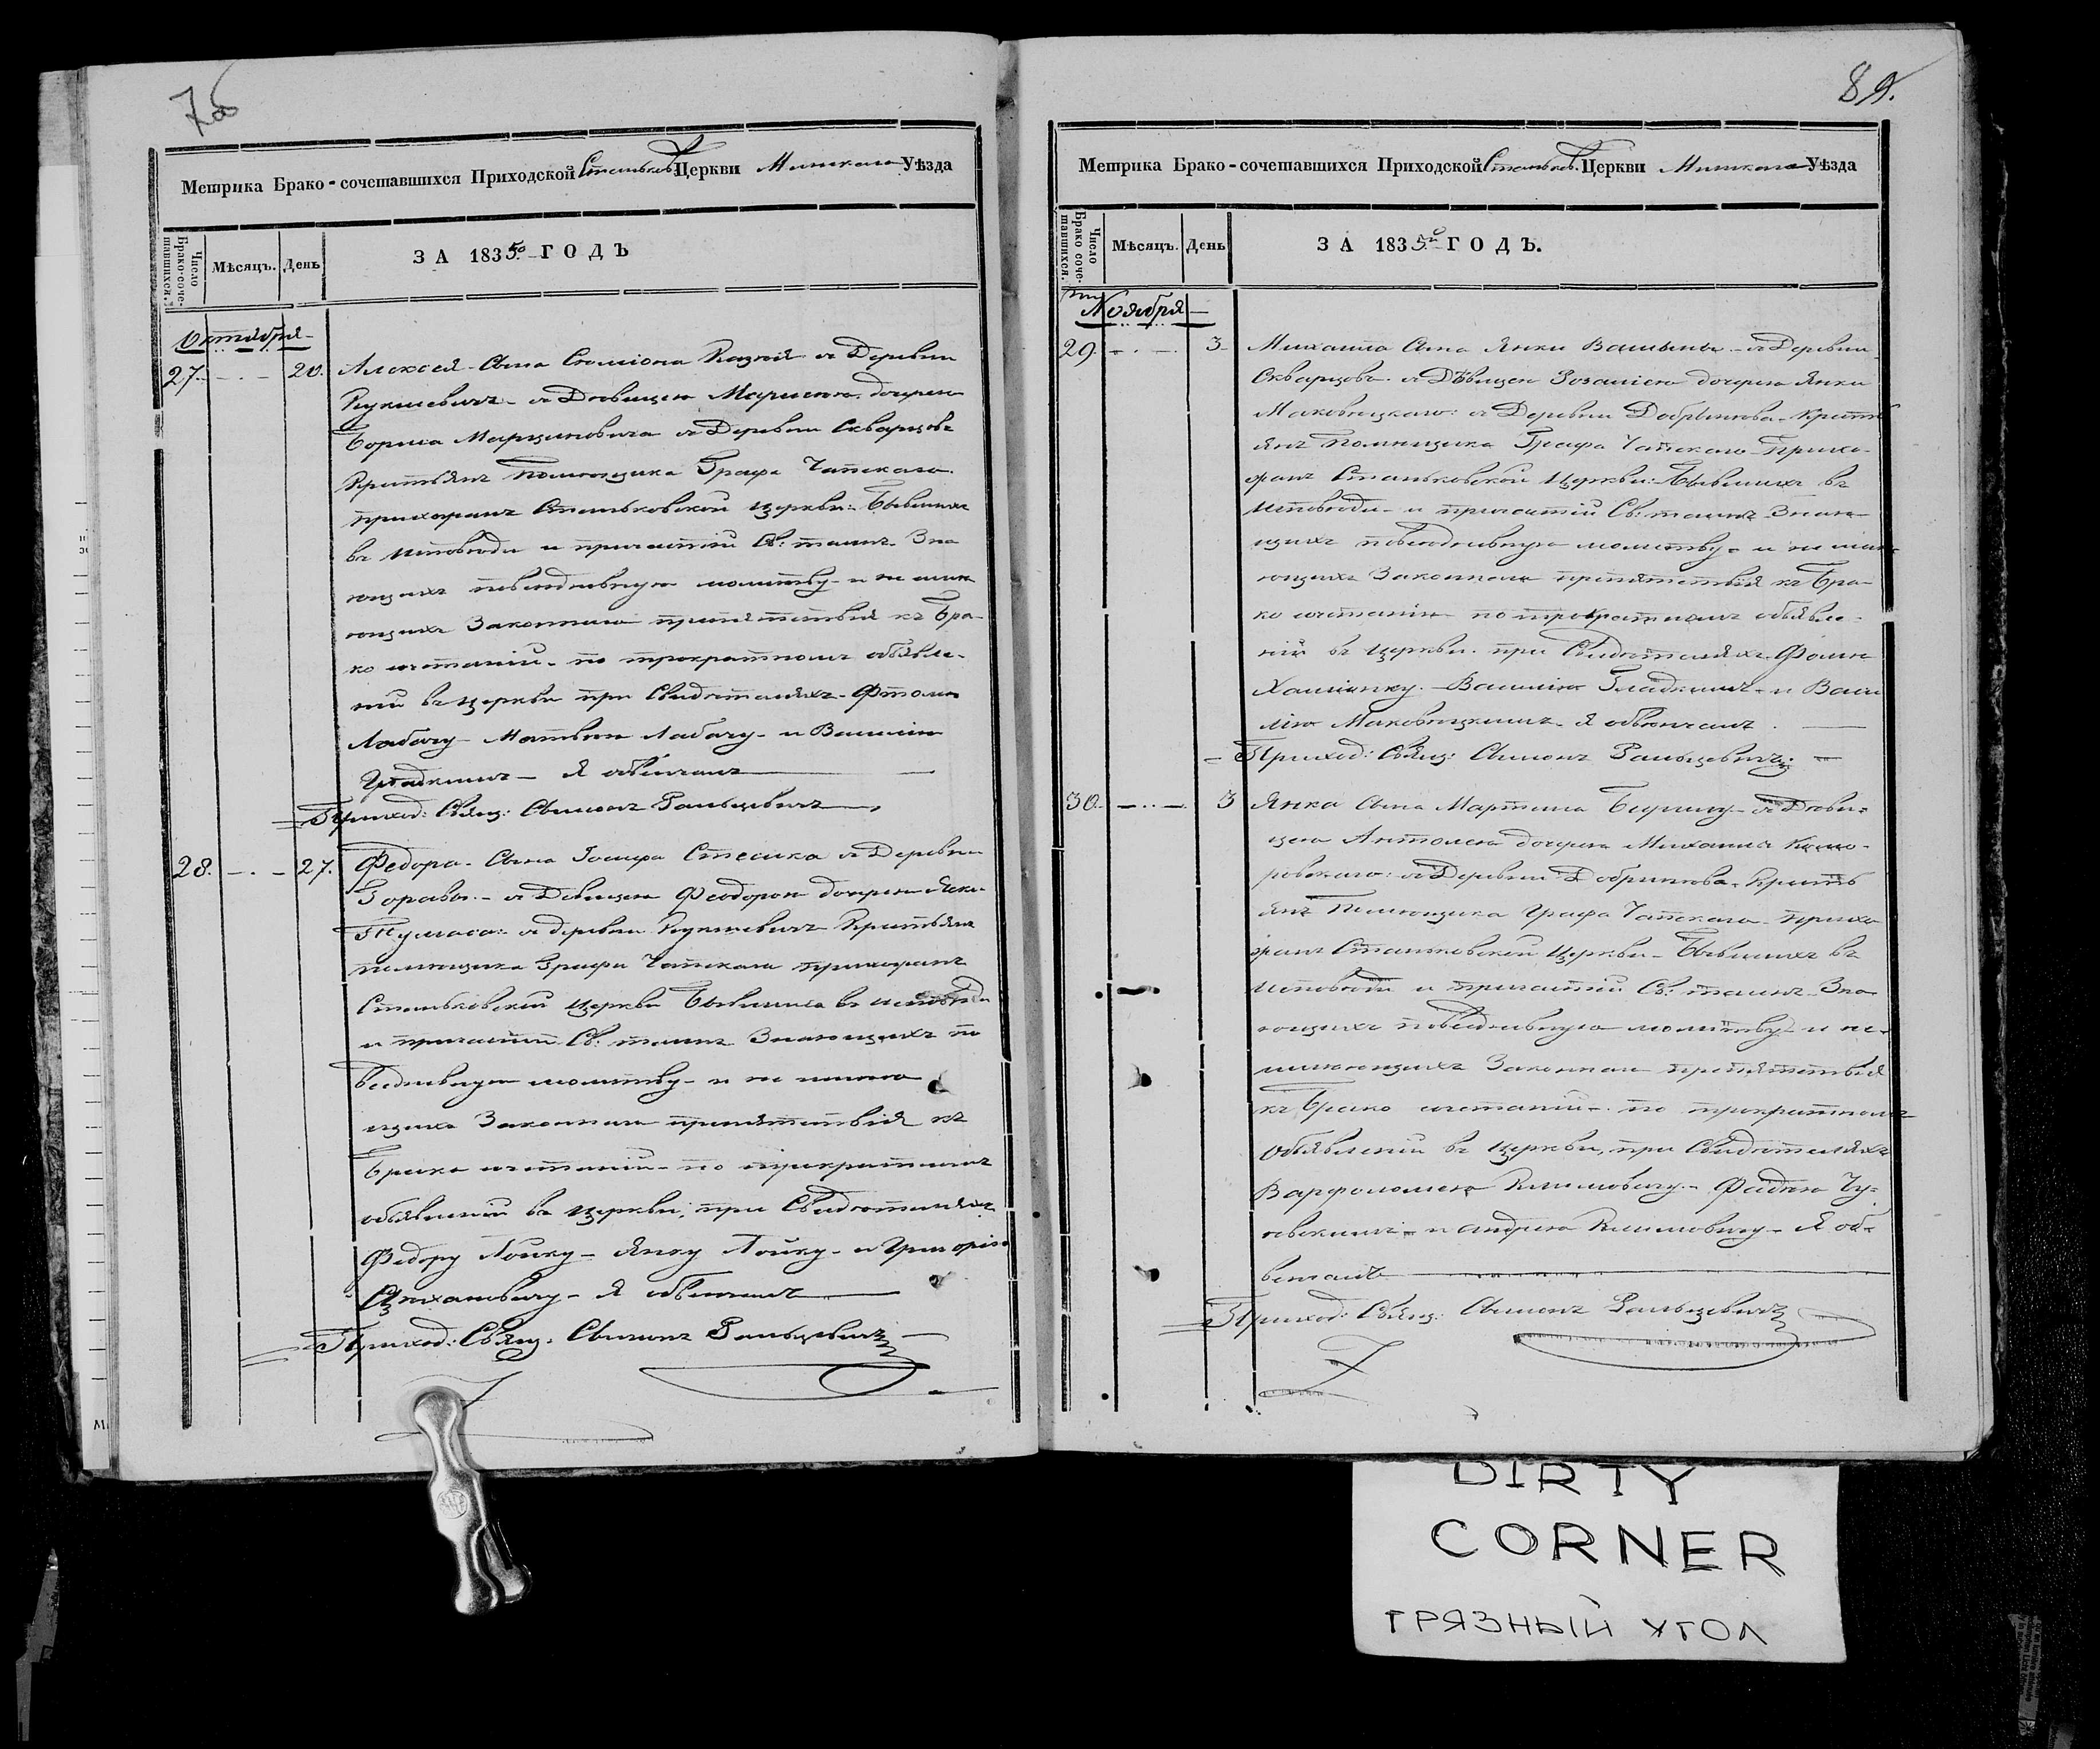 Метрика Брако-сочетавшихся Приходской Станьков. Церкви Минскаго Уѣзда
Число Брако-соче-тавшихся.
Мѣсяцъ.
День
ЗА 1835го ГОДЪ
Октября
27. 20. Алексея Сына Сымiона зъ Деревни
зъ Дѣвицею Марьею дочерею
Бориса Марциновича зъ Деревни Скварцовъ
Крестьянъ помѣщика Графа Чапскаго
прихожанъ Станьковской Церкви: бывшихъ
въ исповѣди и причастiи Св: таинъ Зна
ющихъ повседневную молитву и не имѣ
ющихъ Законнаго препятствiя къ Бра-
ко сочетанiи по трократномъ объявле-
нiи въ Церкви при Свидѣтеляхъ
Лабачу Матвею Лабачу и Василiю
Гладкимъ Я обвѣнчалъ
Приход: Свящ: Сымонъ
28. 27. Федора Сына Iосифа Стесика зъ Деревни
зъ Дѣвицею Феодорою дочерею
зъ деревни Крестьянъ
помѣщика Графа Чапскаго прихожанъ
Станьковской Церкви бывшихъ въ исповѣди
и причастiи Св: таинъ Знающихъ по
вседневную молитву и не имѣю
щихъ Законнаго препятствiя къ
Брако сочетанiи по трократномъ
объявленiи въ Церкви, при Свидѣтеляхъ
Федору Янку и Григорiю
Я обвѣнчалъ
Приход: Свящ. Сымонъ
89.
Метрика Брако-сочетавшихся Приходской Станьков. Церкви Минскаго Уѣзда
Число Брако соче-тавшихся.
Мѣсяцъ.
День
ЗА 1835го ГОДЪ.
Ноября
29. 3. Михаила Сына Янки зъ Деревни
Скварцовъ зъ Дѣвицею Розалiею дочерею Янки
Маковецкаго: зъ Деревни Добринева Кресть
янъ Помѣщика Графа Чапскаго Прихо-
жанъ Станьковской Церкви: бывшихъ въ
исповѣди и причастiи Св: таинъ Знаю-
щихъ повседневную молитву и не имѣ
ющихъ Законнаго препятствiя къ Бра-
ко сочетанiи по трократномъ объявле-
нiи въ Церкви при Свидѣтеляхъ
Василiю Гладкимъ и Васи
лiю Маковецкимъ Я обвѣнчалъ
Приход: Свящ: Сымонъ
30. 3 Янка Сына Мартина зъ Дѣви-
цею дочерею Михаила Комо-
ровскаго: зъ Деревни Добринева Кресть
янъ Помѣщика Графа Чапскаго прихо
жанъ Станьковской Церкви бывшихъ въ
исповѣди и причастiи Св: таинъ Зна-
ющихъ повседневную молитву и не
имѣющихъ Законнаго препятствiя
къ Брако сочетанiи по трократномъ
Объявленiи въ Церкви, при Свидѣтеляхъ
Варфоломею Климовичу Фадею
и андрею Климовичу Я об-
венчалъ
Приход: Свящ: Сымонъ
DIRTY
CORNER
ГРЯЗНЫЙ УГОЛ